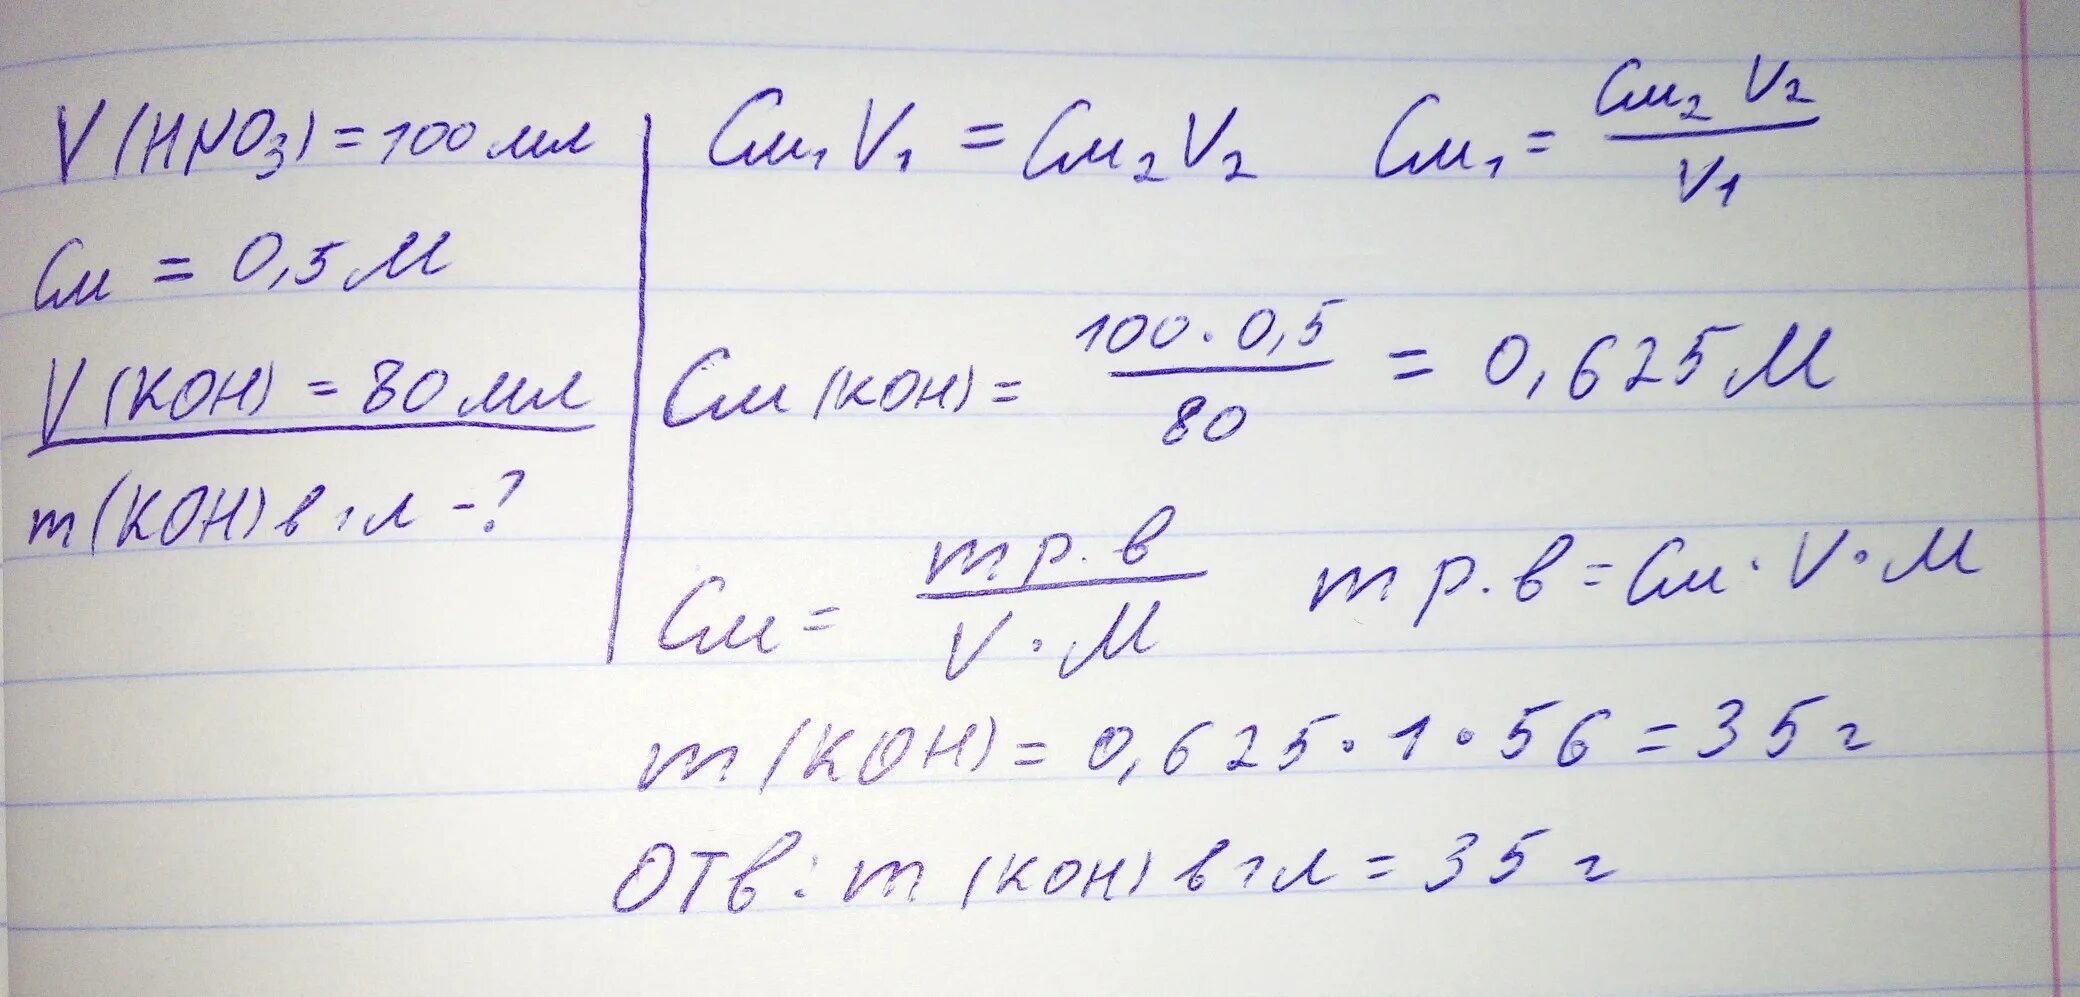 V (HNO₃) = 100 мл
См = 0,5 М
V (KOH) = 80 мл
m (KOH) в 1 л - ?
См₁ V₁ = См₂ V₂ См₁ = См₂ V₂ / V₁
См (KOH) = 100 · 0,5 / 80 = 0,625 М
См = m р.в / V · М m р.в = См · V · М
m (KOH) = 0,625 · 1 · 56 = 35 г
Отв: m (KOH) в 1 л = 35 г